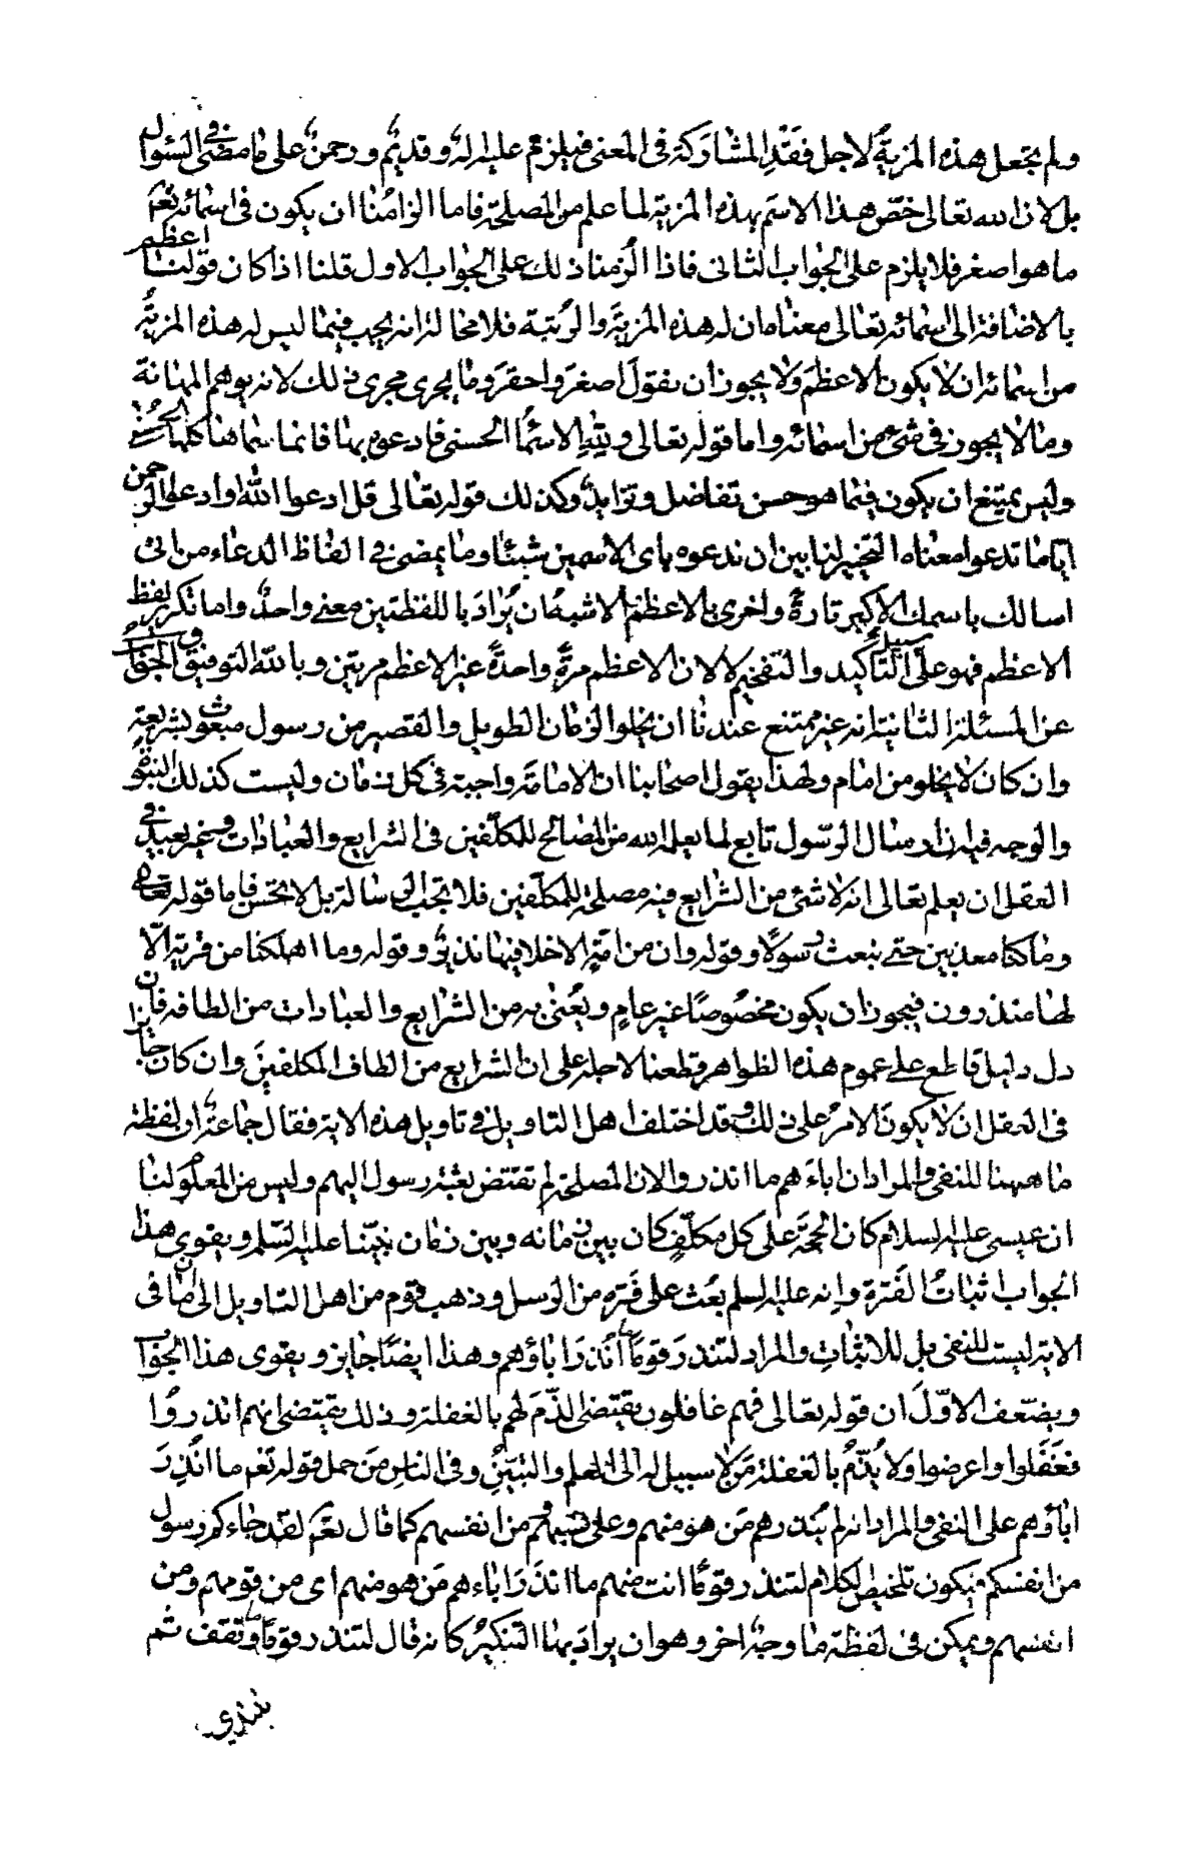 ولم يجعل هذه المزية لاجل فقد المشاركة في المعنى فيلزم عليه اله وقديم ورحمن على ما مضى في السئوال
بل لان الله تعالى خص هذا الاسم بهذه المزية لما علم من المصلحة فاما الزامنا ان يكون في اسمائه تعم
ما هو اصغر فلا يلزم على الجواب الثاني فاذا الزمنا ذلك على الجواب الاول قلنا اذا كان قولنا اعظم
بالاضافة الى اسمائه تعالى معناه ان له هذه المزية والرتبة فلا محالة انه يجب فيما ليس له هذه المزية
من اسمائه ان لا يكون الاعظم ولا يجوز ان نقول اصغر واحقر وما يجرى مجرى ذلك لانه يوهم المهانة
وما لا يجوز في شئ من اسمائه واما قوله تعالى ولله الاسماء الحسنى فادعوه بها فانما سماها كلها الحسنى
وليس يمتنع ان يكون فيما هو حسن تفاضل وتزايد وكذلك قوله تعالى قل ادعوا الله او ادعوا الرحمن
اياما تدعوا معناه التخيير لنا بين ان ندعوه باى الاسمين شيئا وما يمضى في الفاظ الدعاء من انى
اسالك باسمك الاكبر تارة واخرى بالاعظم الاشبه ان يراد باللفظتين معنى واحد واما تكرير لفظ
الاعظم فهو على سبيل التأكيد والتفخيم لا لان الاعظم مرة واحدة غير الاعظم مرتين وبالله التوفيق والجواب
عن المسئلة الثانية انه غير ممتنع عندنا ان يخلو الزمان الطويل والقصير من رسول مبعوث بشريعة
وان كان لا يخلو من امام ولهذا يقول اصحابنا ان الامامة واجبة في كل زمان وليست كذلك النبوة
والوجه فيه ان ارسال الرسول تابع لما يعلمه الله من المصالح للمكلفين في الشرايع والعبادات وغير بعيد في
العقل ان يعلم تعالى انه لا شئ من الشرايع فيه مصلحة للمكلفين فلا تجب الرسالة بل لا تحسن فاما قوله تعالى
وما كنا معذبين حتى نبعث رسولا وقوله وان من امة الا خلا فيها نذير وقوله وما اهلكنا من قرية الا
لها منذرون فيجوز ان يكون مخصوصا غير عام ويعنى به من الشرايع والعبادات من الطافه فان
دل دليل قاطع على عموم هذه الظواهر قطعنا لاجله على ان الشرايع من الطاف المكلفين وان كان جايزا
في العقل ان لا يكون الامر على ذلك وقد اختلف اهل التاويل في تاويل هذه الاية فقال جماعة ان لفظة
ما ههنا للنفى والمراد ان اباءهم ما انذروا لان المصلحة لم تقتض بعثة رسول اليهم وليس من المعلوم لنا
ان عيسى عليه السلام كان الحجة على كل مكلف كان بين زمانه وبين زمان نبينا عليه السلم ويقوى هذا
الجواب اثبات الفترة وانه عليه السلم بعث على فترة من الرسل وذهب قوم من اهل التاويل الى ان ما في
الاية ليست للنفى بل للاثبات والمراد لتنذر قوما ما انذر اباؤهم وهذا ايضا جايز ويقوى هذا الجواب
ويضعف الاول ان قوله تعالى فهم غافلون يقتضى الذم لهم بالغفلة وذلك يقتضى انهم انذروا
فغفلوا واعرضوا ولا يذم بالغفلة من لا سبيل له الى العلم والتبين وفي الناس من حمل قوله تعم ما انذر
اباؤهم على النفى والمراد انه لم ينذرهم من هو منهم وعلى نسبهم من انفسهم كما قال تعم لقد جاءكم رسول
من انفسكم فيكون تلخيص الكلام لتنذر قوما انت منهم ما انذر اباءهم من هو منهم اى من قومهم ومن
انفسهم ويمكن في لفظة ما وجه اخر وهو ان يراد بها التنكير كانه قال لتنذر قوما وتقف ثم